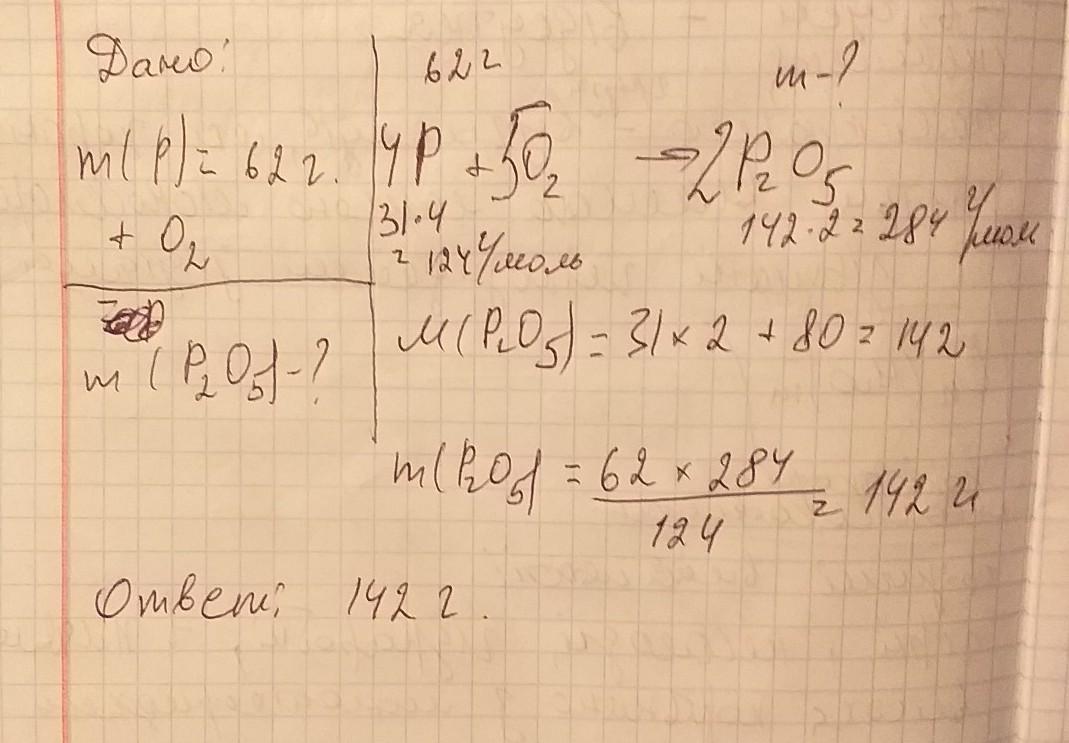 Дано:
m(P)= 62 г.
+ O₂
m (P₂O₅)-?
62 г
m-?
4P + 5O₂ → 2P₂O₅
31·4
= 124 г/моль
142·2 = 284 г/мол
M(P₂O₅) = 31 × 2 + 80 = 142
m(P₂O₅) = 62 × 284 / 124 = 142 г
Ответ: 142 г.